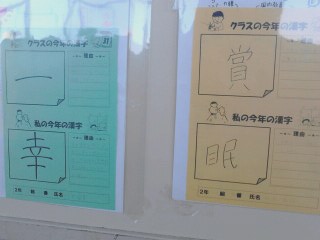 クラスの今年の漢字
理由
一
私の今年の漢字
理由
幸
2年 組 番 氏名
クラスの今年の漢字
理由
賞
私の今年の漢字
理由
眠
2年 組 番 氏名